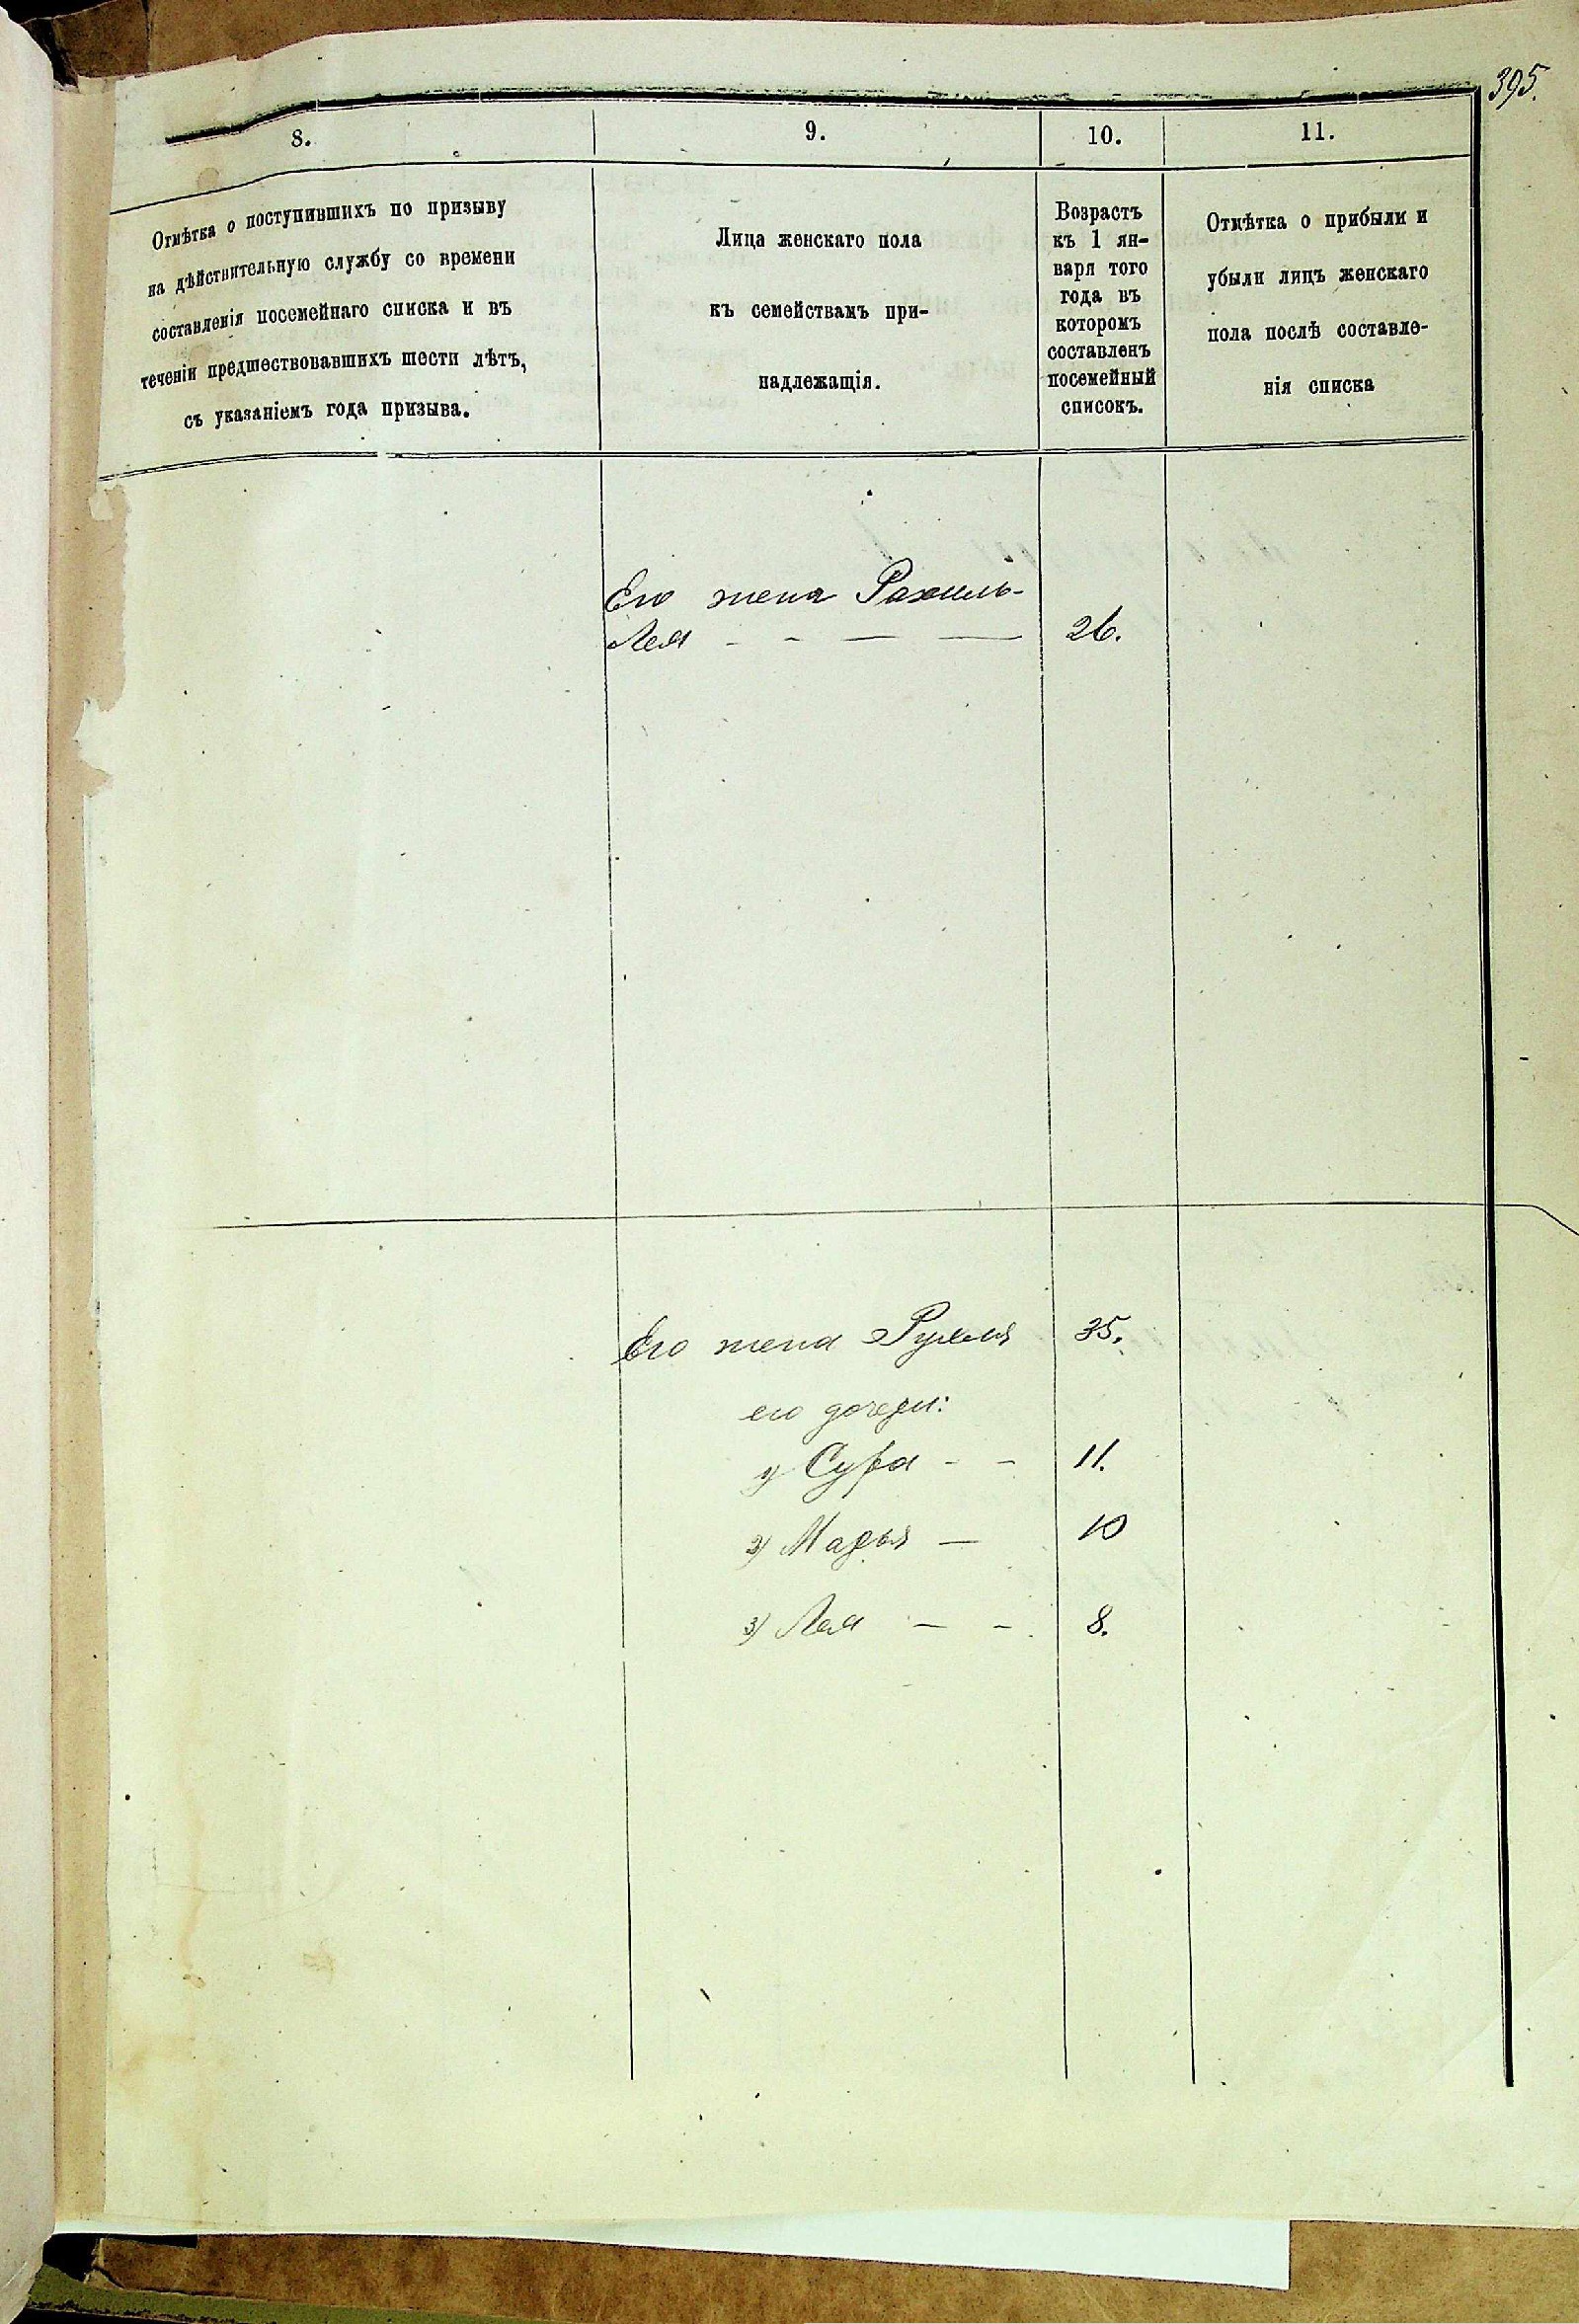 395.
8.
9.
10.
11.
Отмѣтка о поступившихъ по призыву
на дѣйствительную службу со времени
составленія посемейнаго списка и въ
теченіи предшествовавшихъ шести лѣтъ,
съ указаніемъ года призыва.
Лица женскаго пола
къ семействамъ при-
надлежащія.
Возрастъ
къ 1 ян-
варя того
года въ
которомъ
составленъ
посемейный
списокъ.
Отмѣтка о прибыли и
убыли лицъ женскаго
пола послѣ составле-
нія списка
Его жена Рахиль-
Лея - - — — 26.
Его жена 35.
его дочери:
1) Сура - - 11.
2) Марья — 10
3) Лея — - 8.